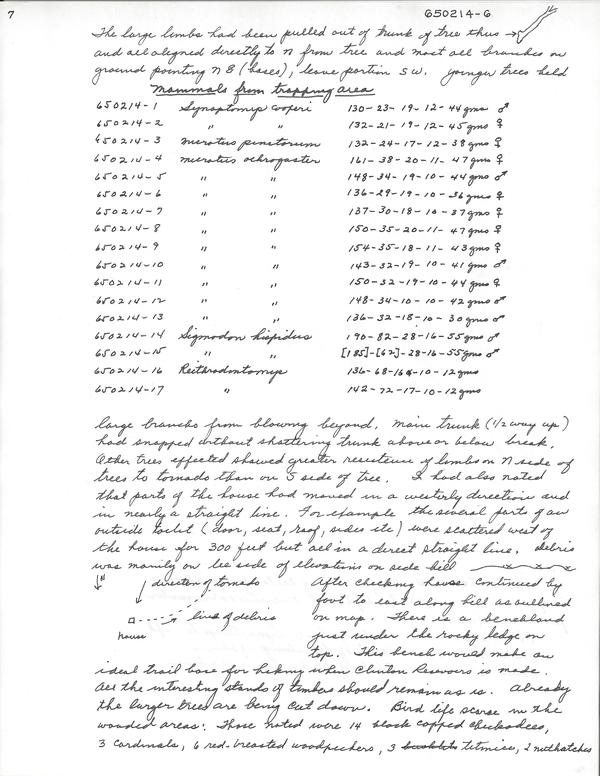 7
650214-6
The large limbs had been pulled out of trunk of tree thus →
and all aligned directly to N from tree and most all branches on
ground pointing NE (bases), leave portion SW. younger trees held
Mammals from trapping area
650214-1 Synaptomys cooperi 130-23-19-12-44 gms ♂
650214-2 " " 132-21-19-12-45 gms ♀
650214-3 microtus pinetorum 132-24-17-12-38 gms ♀
650214-4 microtus ochrogaster 161-38-20-11-47 gms ♀
650214-5 " " 148-34-19-10-44 gms ♂
650214-6 " " 136-29-19-10-36 gms ♀
650214-7 " " 137-30-18-10-37 gms ♀
650214-8 " " 150-35-20-11-47 gms ♀
650214-9 " " 154-35-18-11-43 gms ♀
650214-10 " " 143-32-19-10-41 gms ♂
650214-11 " " 150-32-19-10-44 gms ♀
650214-12 " " 148-34-10-10-42 gms ♂
650214-13 " " 136-32-18-10-30 gms ♂
650214-14 Sigmodon hispidus 190-82-28-16-55 gms ♂
650214-15 " " [185]-[62]-28-16-55 gms ♂
650214-16 Reithrodontomys 136-68-16-10-12 gms
650214-17 " 142-72-17-10-12 gms
large branchs from blowing beyond. main trunk (1/2 way up)
had snapped without shattering trunk above or below break.
Other trees effected showed greater resistence of limbs on N side of
trees to tornado than on S side of tree. I had also noted
that parts of the house had moved in a westerly direction and
in nearly a straight line. For example the several parts of an
outside toilet (door, seat, roof, sides etc) were scattered west of
the house for 300 feet but all in a direct straight line. debris
was mainly on lee side of elevations on side hill
N
direction of tornado
line of debris
house
After checking house continued by
foot to east along hill as outlined
on map. There is a benchland
just under the rocky ledge on
top. This bench would make an
ideal trail base for hiking when Clinton Reservoir is made.
All the interesting stands of timber should remain as is. Already
the larger trees are being cut down. Bird life scarse in the
wooded areas. Those noted were 14 black capped chickadees,
3 Cardinals, 6 red-breasted woodpeckers, 3 titmice, 2 nuthatches